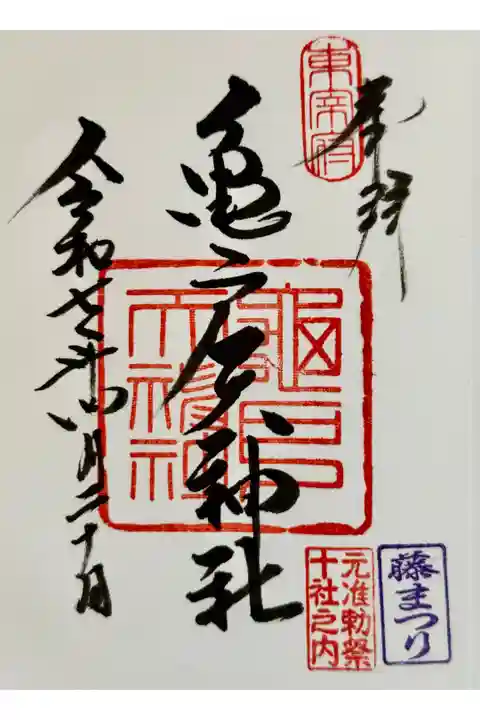 奉拝
東宰府
亀戸天神社
令和七年四月二十日
藤まつり
元准勅祭
十社之内